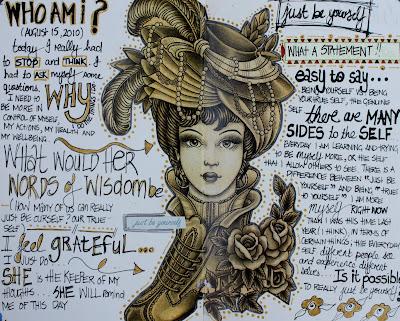 WHO AM I?
(AUGUST 15, 2010)
today I really had
to STOP and THINK. I
had to ASK myself some
questions.
WHY
I NEED TO
BE MORE IN
CONTROL OF MYSELF,
MY ACTIONS, MY HEALTH AND
MY WELLBEING.
WHAT WOULD HER
WORDS OF WISDOM be
(HOW MANY OF US CAN REALLY
JUST BE OURSELF? OUR TRUE
SELF)
I feel GRATEFUL
I JUST DO
SHE IS THE KEEPER OF MY
thoughts... SHE WILL REMIND
ME OF THIS DAY
just be yourself
just be yourself
WHAT A STATEMENT!!
easy to say...
BEING YOURSELF IS BEING
YOUR TRUE SELF, THE GENUINE
SELF
there are MANY
SIDES to the SELF
EVERYDAY I AM LEARNING AND TRYING
TO BE MYSELF MORE, OR THE SELF
THAT I ALLOW OTHERS TO SEE. THERE IS A
DIFFERENCE BETWEEN "JUST BE
YOURSELF" AND BEING "TRUE
TO YOURSELF" I AM MORE
myself RIGHT NOW
THAN I WAS THIS TIME LAST
YEAR (I THINK). IN TERMS OF
CERTAIN THINGS, THE EVERYDAY
SELF different people see
and experience different
Is it possible
TO REALLY just be yourself?